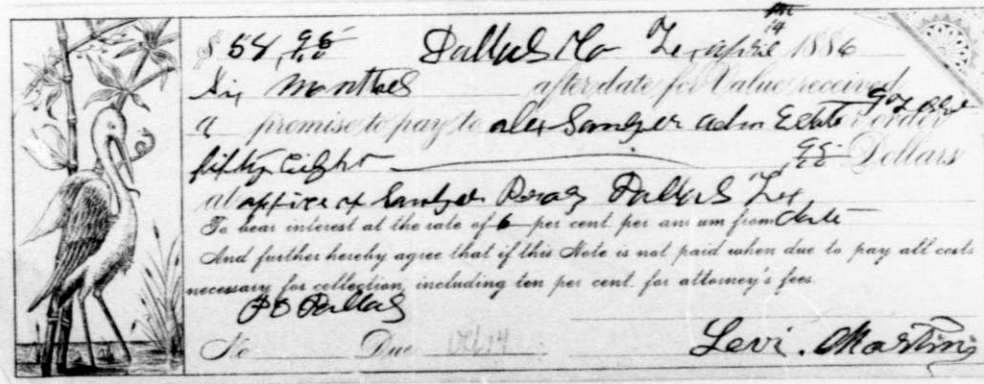 $ 58, 95 Dallas Co Tex, april 14 1886
Six months after date for Value received
a promise to pay to alex Sanger adm Estate order
fifty eight 95 Dollars
at office of Sanger Bros Dallas Tex
To bear interest at the rate of 6 per cent. per annum from date
And further hereby agree that if this Note is not paid when due to pay all costs
necessary for collection, including ten per cent. for attorney's fees.
P O Dallas
No Due Oct 14
Levi. Martin